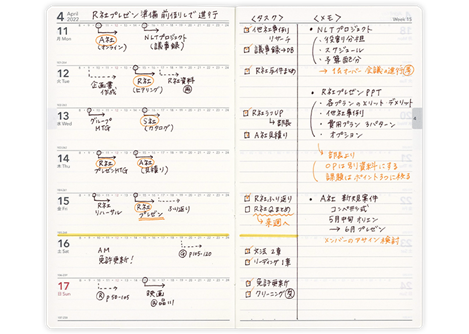 4 April 2022
R社プレゼン準備 前倒しして進行
11 月 Mon
A社
(オンライン)
NLTプロジェクト
(議事録)
12 火 Tue
企画書
作成
R社
(ヒアリング)
R社資料
13 水 Wed
グループ
MTG
S社
(カタログ)
14 木 Thu
プレゼンMTG
A社
(見積り)
15 金 Fri
R社
リハーサル
R社
プレゼン
ふり返り
16 土 Sat
AM
免許更新!
P105-120
17 日 Sun
P50-105
映画
品川
<タスク>
他社事例
リサーチ
議事録→DB
R社与件まとめ
R社ラフUP
→部長
A社見積り
R社ふり返り
R社Q&まとめ
→来週へ
文法 2章
リーディング 1章
免許更新
クリーニング
<メモ>
Week 15
・NLTプロジェクト
・役割分担
・スケジュール
・予算配分
・R社プレゼンPPT
・各プランのメリット デメリット
・他社事例
・費用プラン 3パターン
・オプション
→部長より
OPは別資料にする
課題はポイント3つに絞る
・A社 新規案件
コンペ形式
5月中旬オリエン
→6月プレゼン
メンバーのアサイン検討